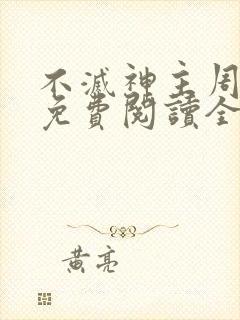 不滅神主周
免費閱讀全
黃亮